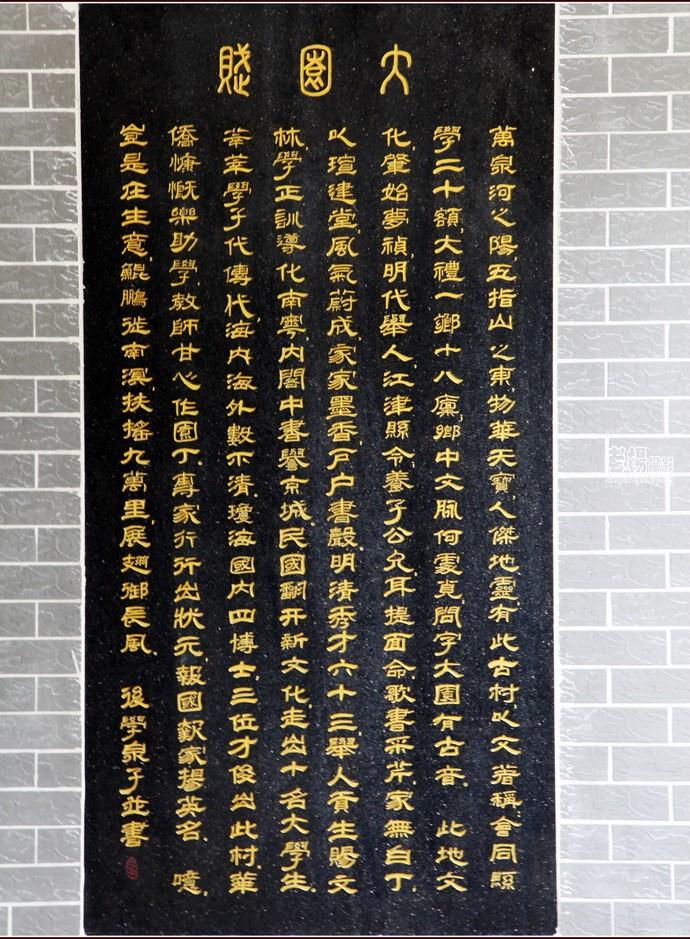 大園賦
萬泉河之陽,五指山之東,物華天寶,人傑地靈,有此古村,以文著稱,會同縣
學二十額,大禮一鄉十八廩,鄉中文脈何處覓,問字大園有古音。 此地文
化肇始夢禎,明代舉人,江津縣令,養子公允,耳提面命,歌書采芹,家無白丁,
以瑄建堂,風氣蔚成,家家墨香,戶戶書聲,明清秀才六十三,舉人貢生賜文
林,學正訓導化南粵,內閣中書譽京城,民國翻开新文化,走出十名大學生,
莘莘學子代傳代,海內海外數不清,瓊海國內四博士,三位才俊出此村,華
僑慷慨樂助學,教師甘心作園丁,專家行行出狀元,報國獻家揚英名。 噫,
豈是莊生意,鯤鵬徙南溟,扶搖九萬里,展翅御長風。 後學泉子並書
老楊攝影